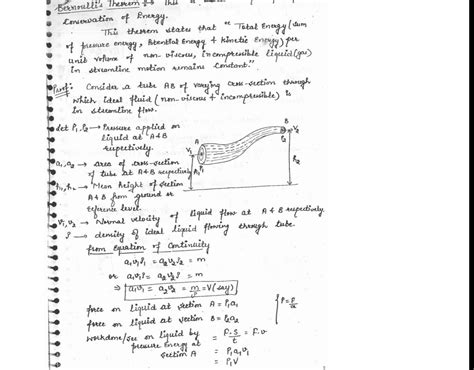 Bernoulli's Theorem :- This is
Conservation of Energy.
This theorem states that "Total Energy (sum
of pressure energy, Potential Energy & Kinetic Energy) per
unit volume of non-viscous, incompressible liquid (gas)
in streamline motion remains Constant."
Proof: Consider a tube AB of varying cross-section through
which ideal fluid (non-viscous & incompressible) is
in streamline flow.
Let P₁, P₂ → Pressure applied on
liquid at A & B
respectively.
a₁, a₂ → area of cross-section
of tube at A & B respectively
h₁, h₂ → Mean Height of section
A & B from ground or
reference level.
v₁, v₂ → Normal velocity of liquid flow at A & B respectively.
ρ → density of ideal liquid flowing through tube.
B
V₂
P₂
A
V₁
P₁
h₂
from Equation of Continuity
a₁v₁ρ = a₂v₂ρ = m
or a₁v₁ρ = a₂v₂ρ = m
⇒ a₁v₁ = a₂v₂ = m/ρ = V (say)
force on liquid at section A = P₁a₁
force on liquid at section B = P₂a₂
{P = F/a
workdone/sec on liquid by = F.S/t = F.v
pressure Energy at
section A = P₁a₁v₁
= P₁V